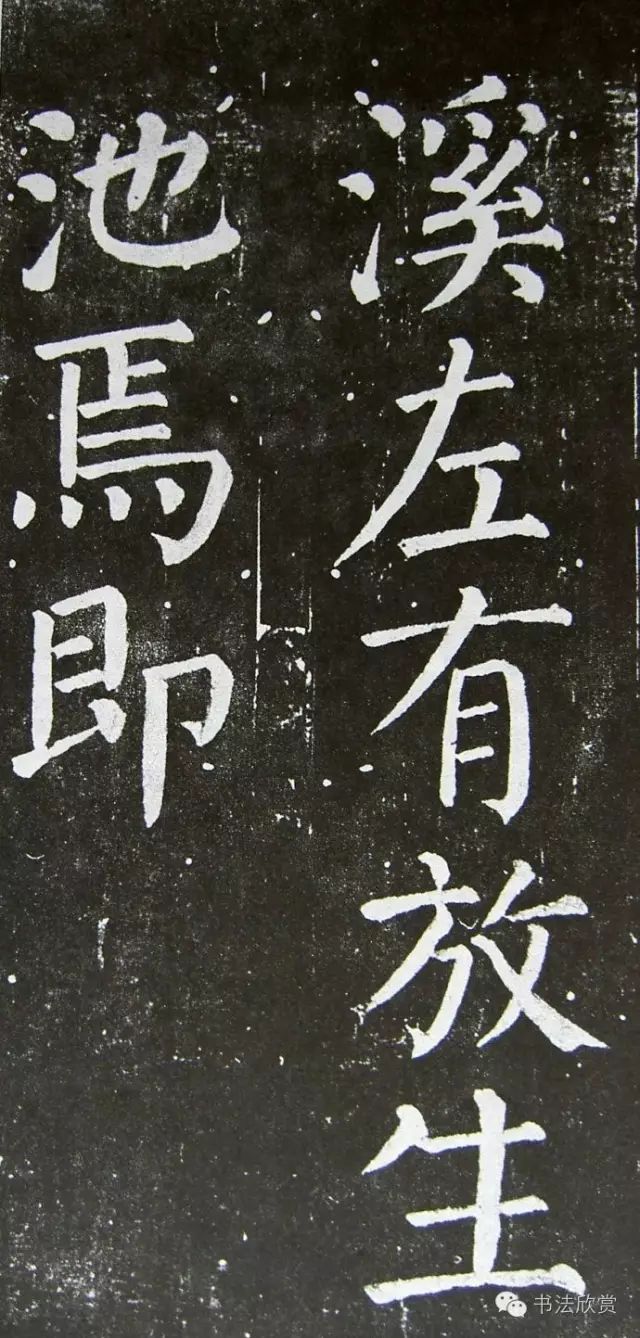 溪左有放生
池焉即
书法欣赏